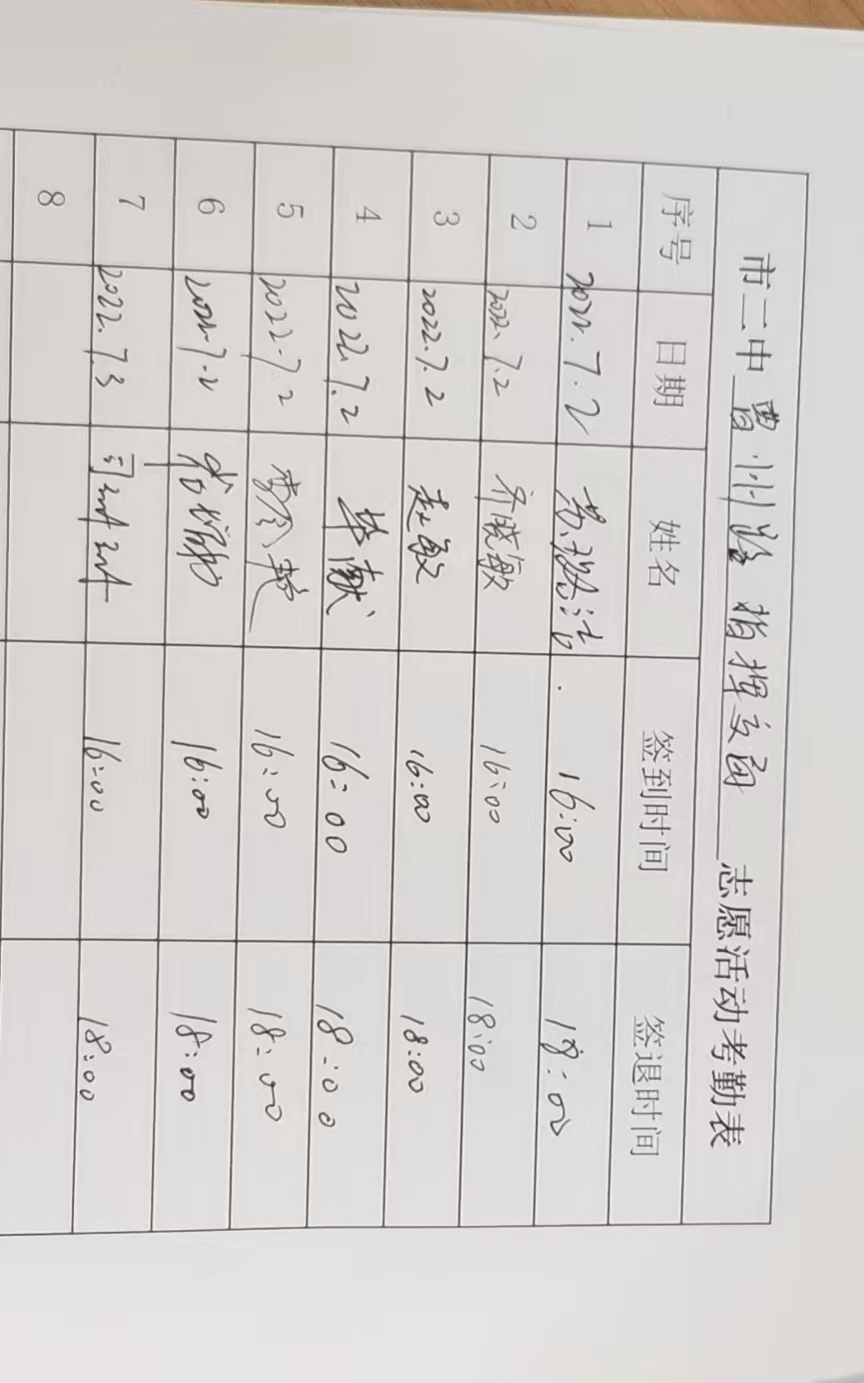 市二中 曹州路 指挥交通 志愿活动考勤表
序号 日期 姓名 签到时间 签退时间
1 2022.7.2 16:00 18:00
2 2022.7.2 乔晓敏 16:00 18:00
3 2022.7.2 赵敏 16:00 18:00
4 2022.7.2 毕献 16:00 18:00
5 2022.7.2 16:00 18:00
6 2022.7.2 16:00 18:00
7 2022.7.3 司珂珂 16:00 18:00
8